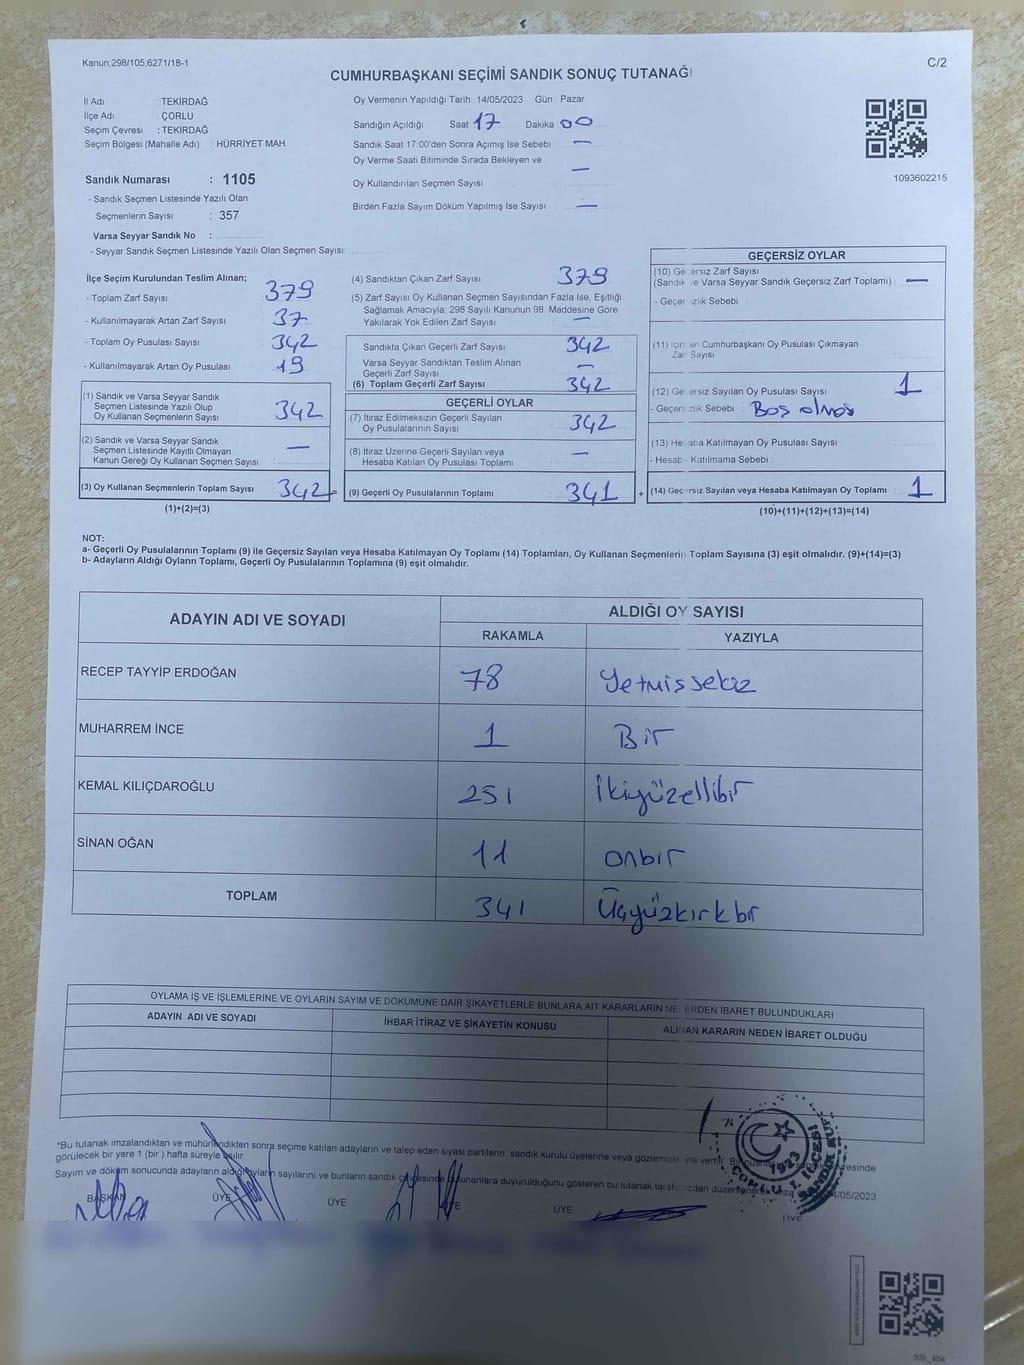 Kanun;298/105;6271/18-1
C/2
CUMHURBAŞKANI SEÇİMİ SANDIK SONUÇ TUTANAĞI
İl Adı : TEKİRDAĞ
İlçe Adı : ÇORLU
Seçim Çevresi : TEKİRDAĞ
Seçim Bölgesi (Mahalle Adı) : HÜRRİYET MAH.
Sandık Numarası : 1105
- Sandık Seçmen Listesinde Yazılı Olan
Seçmenlerin Sayısı : 357
Varsa Seyyar Sandık No :
- Seyyar Sandık Seçmen Listesinde Yazılı Olan Seçmen Sayısı:
Oy Vermenin Yapıldığı Tarih : 14/05/2023 Gün : Pazar
Sandığın Açıldığı Saat 17 Dakika 00
Sandık Saat 17:00'den Sonra Açımış İse Sebebi —
Oy Verme Saati Bitiminde Sırada Bekleyen ve
Oy Kullandırılan Seçmen Sayısı —
Birden Fazla Sayım Döküm Yapılmış İse Sayısı —
1093602215
İlçe Seçim Kurulundan Teslim Alınan;
- Toplam Zarf Sayısı 379
- Kullanılmayarak Artan Zarf Sayısı 37
- Toplam Oy Pusulası Sayısı 342
- Kullanılmayarak Artan Oy Pusulası 19
(1) Sandık ve Varsa Seyyar Sandık
Seçmen Listesinde Yazılı Olup
Oy Kullanan Seçmenlerin Sayısı 342
(2) Sandık ve Varsa Seyyar Sandık
Seçmen Listesinde Kayıtlı Olmayan
Kanun Gereği Oy Kullanan Seçmen Sayısı —
(3) Oy Kullanan Seçmenlerin Toplam Sayısı 342 =
(1)+(2)=(3)
(4) Sandıktan Çıkan Zarf Sayısı 379
(5) Zarf Sayısı Oy Kullanan Seçmen Sayısından Fazla İse, Eşitliği
Sağlamak Amacıyla, 298 Sayılı Kanunun 98. Maddesine Göre
Yakılarak Yok Edilen Zarf Sayısı —
Sandıkta Çıkan Geçerli Zarf Sayısı 342
Varsa Seyyar Sandıktan Teslim Alınan
Geçerli Zarf Sayısı —
(6) Toplam Geçerli Zarf Sayısı 342
GEÇERLİ OYLAR
(7) İtiraz Edilmeksizin Geçerli Sayılan
Oy Pusulalarının Sayısı 342
(8) İtiraz Üzerine Geçerli Sayılan veya
Hesaba Katılan Oy Pusulası Toplamı —
(9) Geçerli Oy Pusulalarının Toplamı 341 +
GEÇERSİZ OYLAR
(10) Geçersiz Zarf Sayısı
(Sandık ve Varsa Seyyar Sandık Geçersiz Zarf Toplamı) : —
- Geçersizlik Sebebi :
(11) İçinden Cumhurbaşkanı Oy Pusulası Çıkmayan
Zarf Sayısı
(12) Geçersiz Sayılan Oy Pusulası Sayısı 1
- Geçersizlik Sebebi : Boş olması
(13) Hesaba Katılmayan Oy Pusulası Sayısı
- Hesaba Katılmama Sebebi :
(14) Geçersiz Sayılan veya Hesaba Katılmayan Oy Toplamı : 1
(10)+(11)+(12)+(13)=(14)
NOT:
a- Geçerli Oy Pusulalarının Toplamı (9) ile Geçersiz Sayılan veya Hesaba Katılmayan Oy Toplamı (14) Toplamları, Oy Kullanan Seçmenlerin Toplam Sayısına (3) eşit olmalıdır. (9)+(14)=(3)
b- Adayların Aldığı Oyların Toplamı, Geçerli Oy Pusulalarının Toplamına (9) eşit olmalıdır.
ADAYIN ADI VE SOYADI ALDIĞI OY SAYISI
RAKAMLA YAZIYLA
RECEP TAYYİP ERDOĞAN 78 Yetmişsekiz
MUHARREM İNCE 1 Bir
KEMAL KILIÇDAROĞLU 251 İkiyüzellibir
SİNAN OĞAN 11 onbir
TOPLAM 341 Üçyüzkırkbir
OYLAMA İŞ VE İŞLEMLERİNE VE OYLARIN SAYIM VE DÖKÜMÜNE DAİR ŞİKAYETLERLE BUNLARA AİT KARARLARIN NELERDEN İBARET BULUNDUKLARI
ADAYIN ADI VE SOYADI İHBAR İTİRAZ VE ŞİKAYETİN KONUSU ALINAN KARARIN NEDEN İBARET OLDUĞU
*Bu tutanak imzalandıktan ve mühürlendikten sonra seçime katılan adayların ve talep eden siyasi partilerin sandık kurulu üyelerine veya gözlemcilerine verilir.
görülecek bir yere 1 (bir ) hafta süreyle asılır.
Sayım ve döküm sonucunda adayların aldığı oyların sayılarını ve bunların sandık çevresinde bulunanlara duyurulduğunu gösteren bu tutanak tarafımızdan düzenlenerek imza 14/05/2023
BAŞKAN ÜYE ÜYE ÜYE ÜYE ÜYE
1923